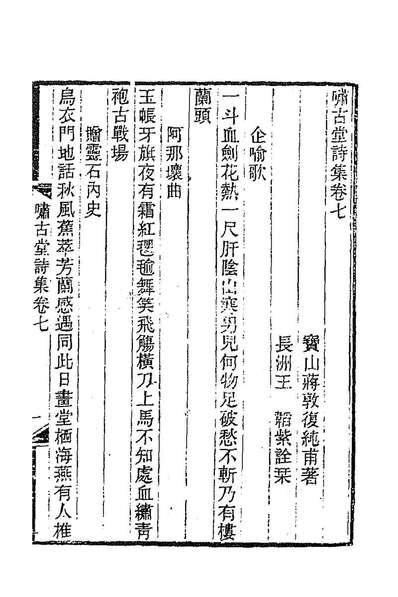 嘯古堂詩集卷七
寶山蔣敦復純甫著
長洲王韜紫詮栞
企喻歌
一斗血劍花熱一尺肝陰山寒男兒何物足破愁不斬乃有樓
蘭頭
阿那瓌曲
玉帳牙旗夜有霜紅氍毹舞笑飛觴橫刀上馬不知處血繡靑
袍古戰場
贈靈石內史
烏衣門地話秋風蕉萃芳蘭感遇同此日畫堂栖海燕有人椎
嘯古堂詩集卷七
一